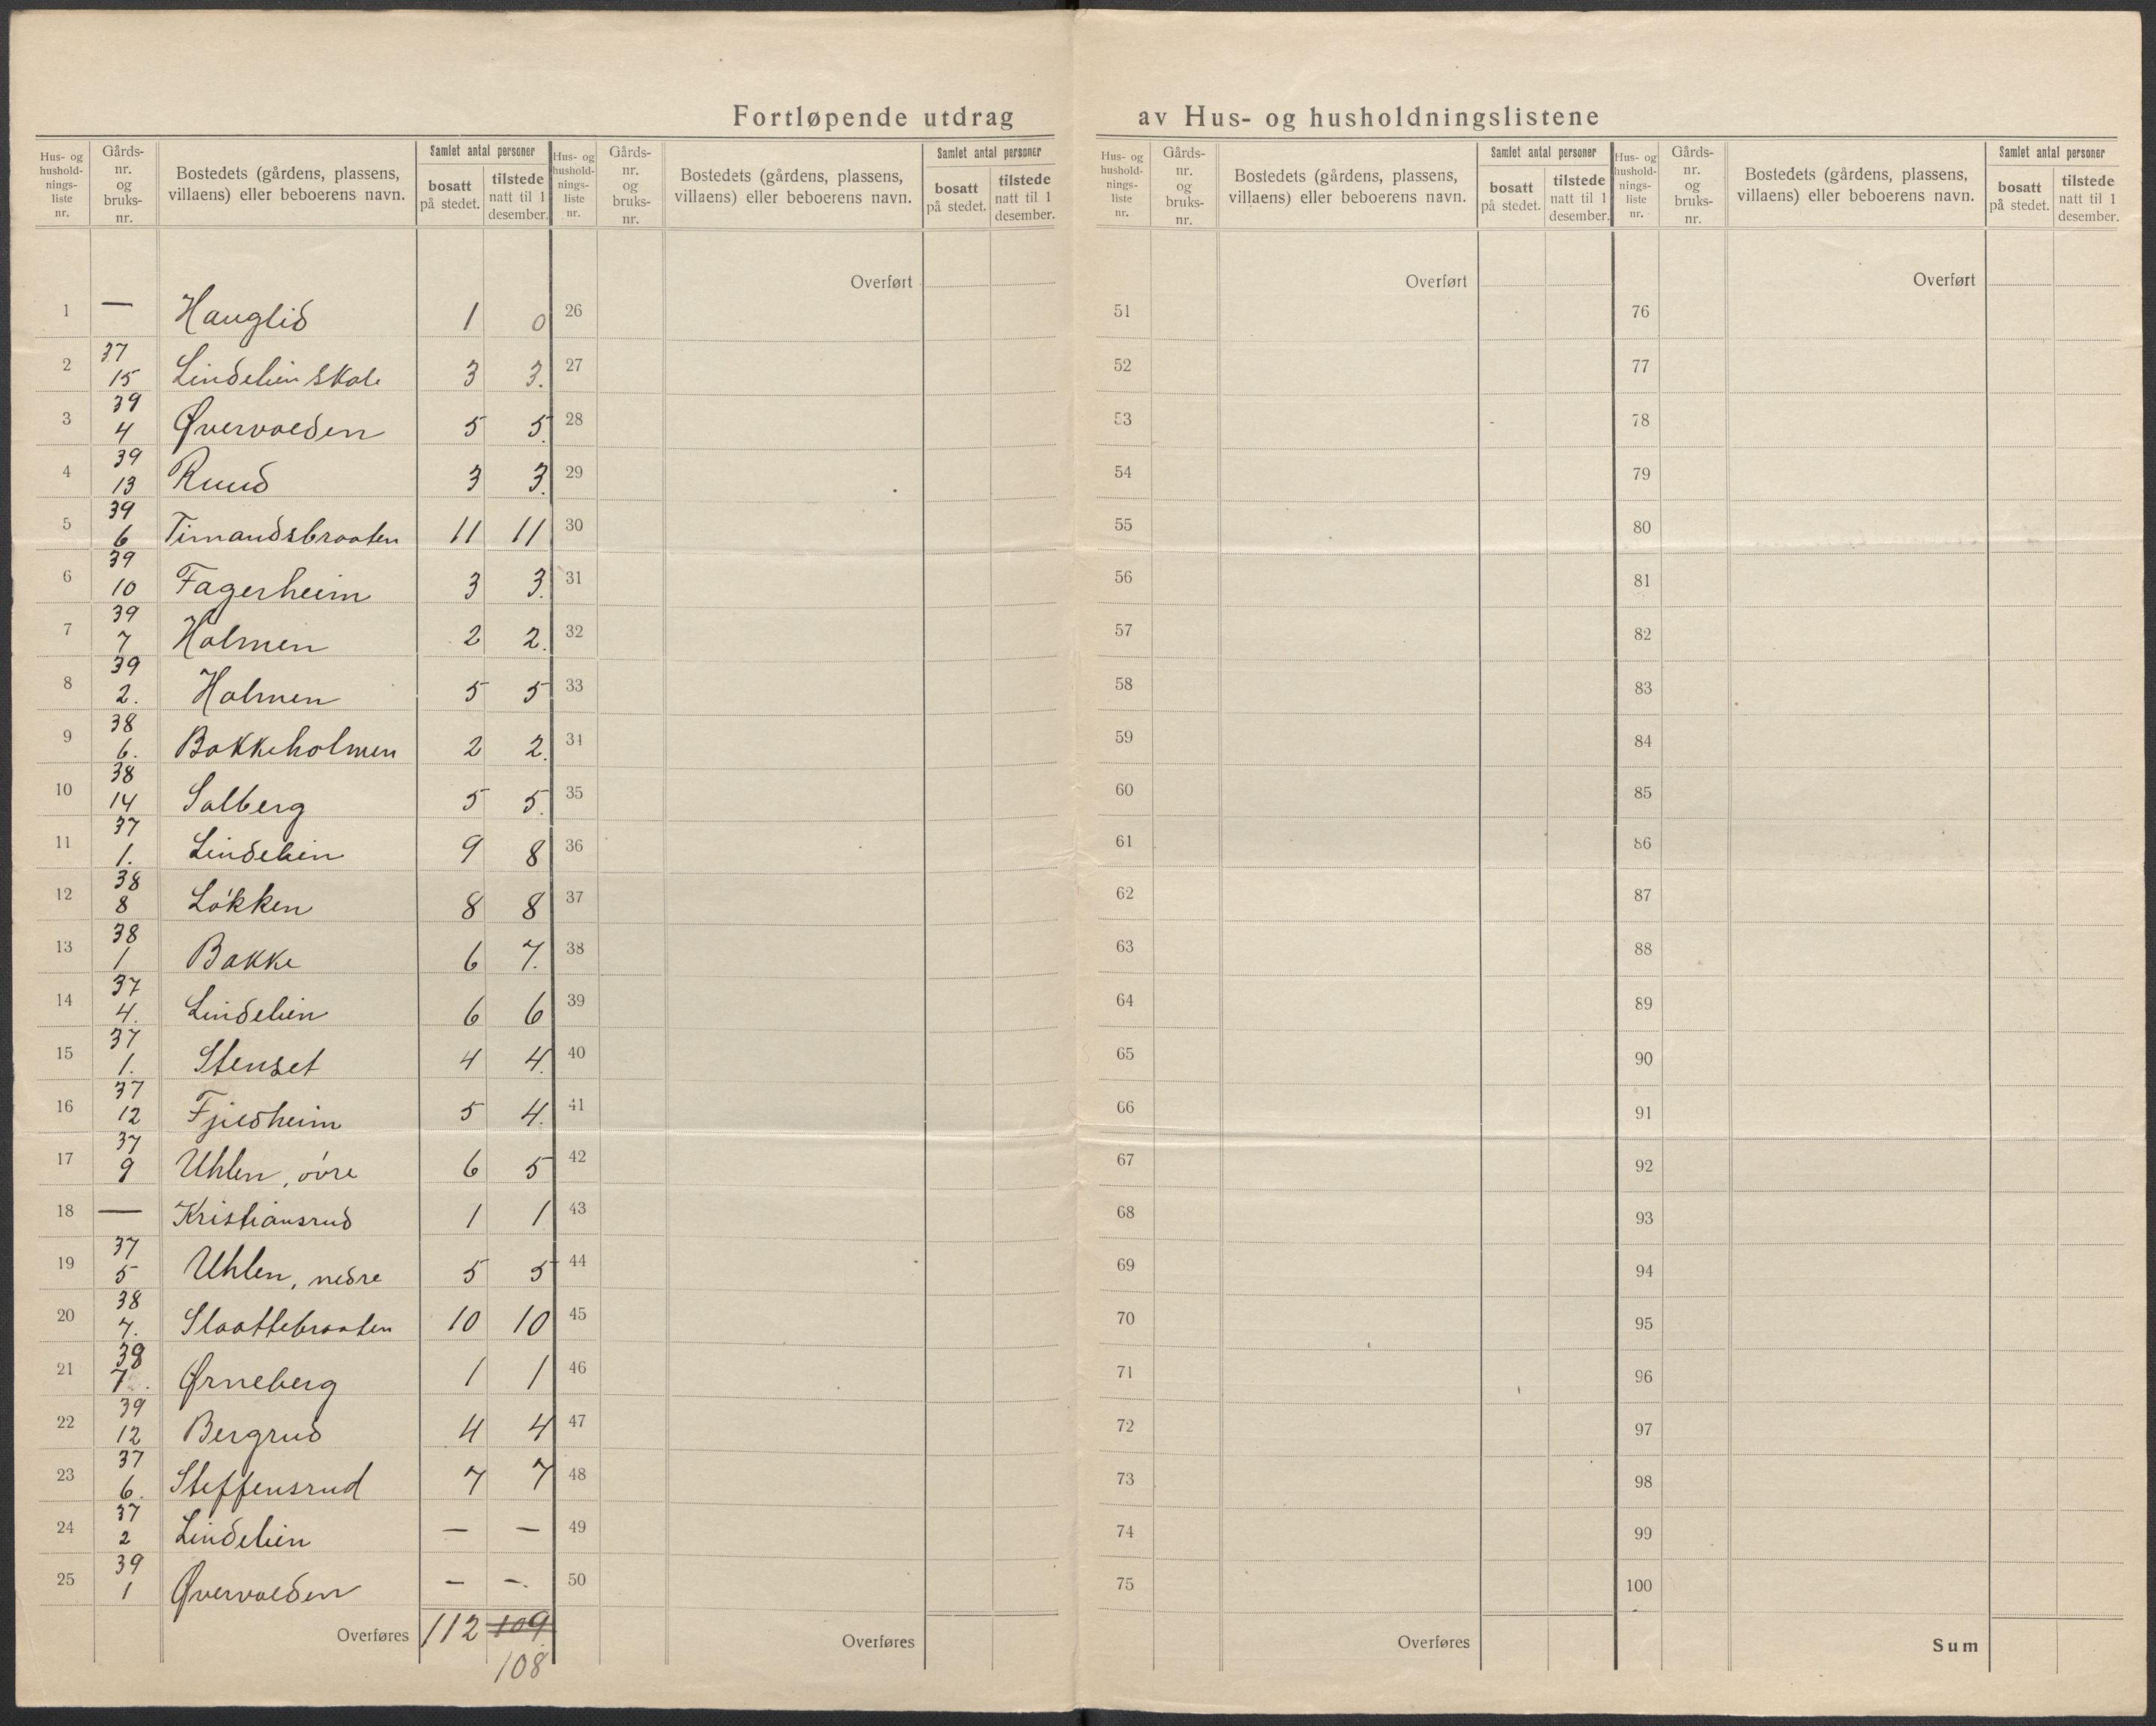 Fortløpende utdrag av Hus- og husholdningslistene
Hus- og hushold-nings-liste nr. Gårds-nr. og bruks-nr. Bostedets (gårdens, plassens, villaens) eller beboerens navn. Samlet antal personer bosatt på stedet. tilstede natt til 1 desember.
1 — Hauglid 1 0
2 37 15 Lindelien skole 3 3.
3 39 4 Øvervolden 5 5.
4 39 13 Ruud 3 3.
5 39 6 Timandsbraaten 11 11
6 39 10 Fagerheim 3 3.
7 39 7 Holmen 2 2.
8 39 2. Holmen 5 5
9 38 6. Bakkeholmen 2 2.
10 38 14 Solberg 5 5.
11 37 1. Lindelien 9 8
12 38 8 Løkken 8 8
13 38 1 Bakke 6 7.
14 37 4. Lindelien 6 6
15 37 1. Stenset 4 4.
16 37 12 Fjeldheim 5 4.
17 37 9 Uhlen, øvre 6 5
18 — Kristiansrud 1 1
19 37 5 Uhlen, nedre 5 5
20 38 7. Slaattebraaten 10 10
21 38 7. Ørneberg 1 1
22 39 12 Bergrud 4 4
23 37 6. Steffensrud 7 7
24 37 2 Lindelien — —
25 39 1 Øvervolden — —.
Overføres 112 109.
108
Hus- og hushold-nings-liste nr. Gårds-nr. og bruks-nr. Bostedets (gårdens, plassens, villaens) eller beboerens navn. Samlet antal personer bosatt på stedet. tilstede natt til 1 desember.
Overført
26
27
28
29
30
31
32
33
34
35
36
37
38
39
40
41
42
43
44
45
46
47
48
49
50
Overføres
Hus- og hushold-nings-liste nr. Gårds-nr. og bruks-nr. Bostedets (gårdens, plassens, villaens) eller beboerens navn. Samlet antal personer bosatt på stedet. tilstede natt til 1 desember.
Overført
51
52
53
54
55
56
57
58
59
60
61
62
63
64
65
66
67
68
69
70
71
72
73
74
75
Overføres
Hus- og hushold-nings-liste nr. Gårds-nr. og bruks-nr. Bostedets (gårdens, plassens, villaens) eller beboerens navn. Samlet antal personer bosatt på stedet. tilstede natt til 1 desember.
Overført
76
77
78
79
80
81
82
83
84
85
86
87
88
89
90
91
92
93
94
95
96
97
98
99
100
Sum